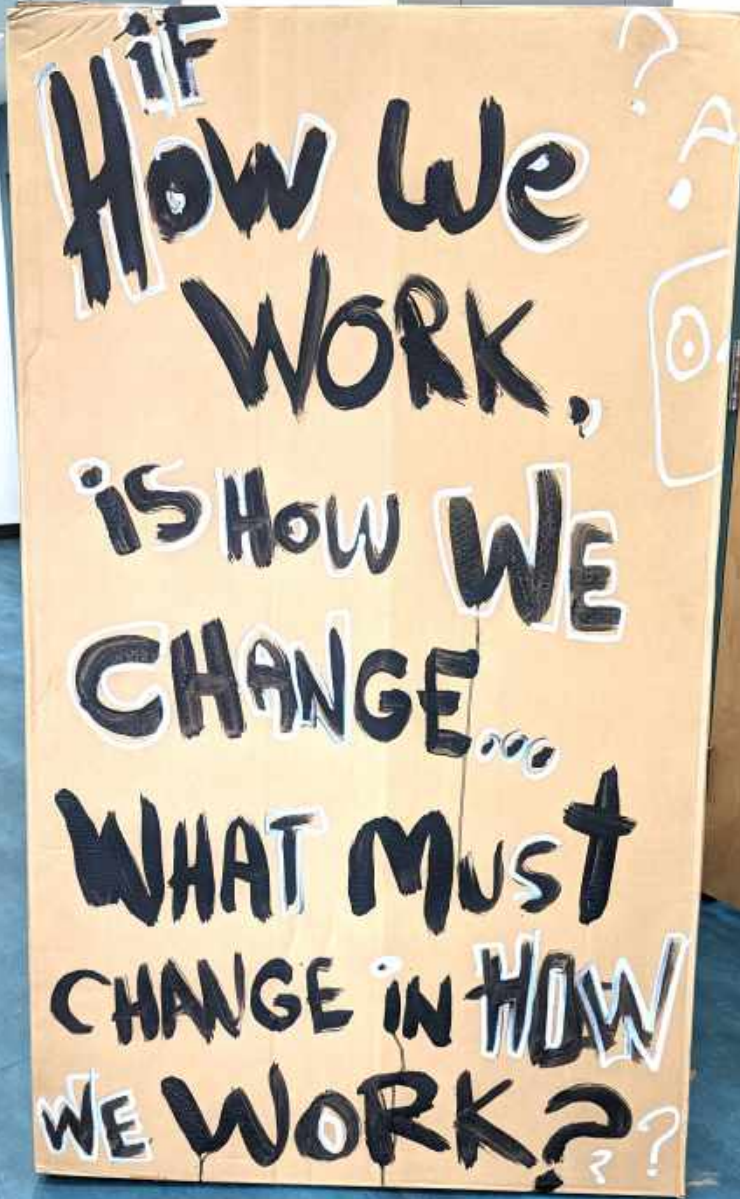 iF
How We
WORK,
is How WE
CHANGE...
WHAT MusT
CHANGE iN HOW
WE WORK?